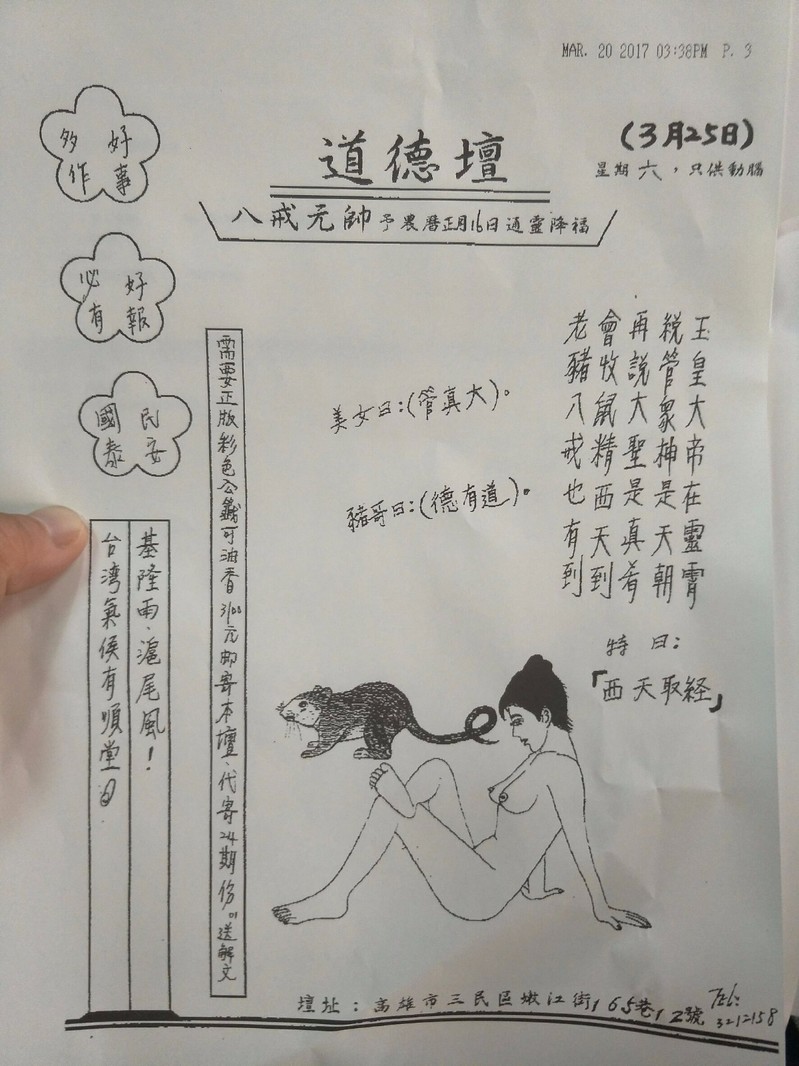 MAR. 20 2017 03:38PM P. 3
(3月25日)
星期六，只供動腦
道德壇
八戒元帥予農曆正月16日通靈降福
好事
多作
好報
必有
民安
國泰
玉皇大帝在靈霄
統管眾神是天朝
再說大聖是真肴
會收鼠精西天到
老豬八戒也有到
特曰：
「西天取経」
美女曰：(管真大)。
豬哥曰：(德有道)。
需要正版彩色公籤可油香3100元郵寄本壇、代寄24期份。送解文
基隆雨．滬尾風！
台湾氣候有順堂
壇址：高雄市三民區嫩江街165巷12號
Tel: 3212158